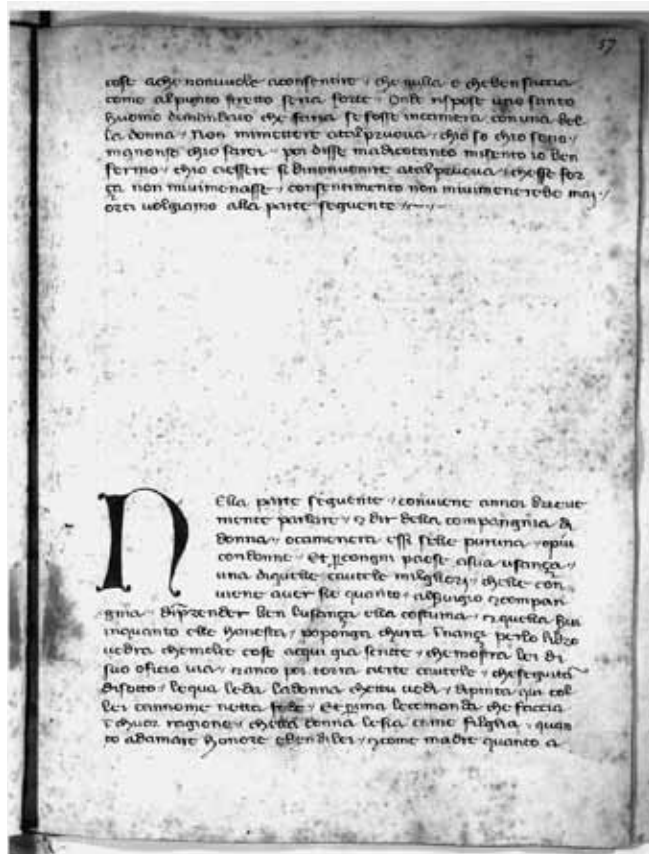 57
cose ache nonvuole aconsentire / che nulla e cheben faccia
como alpunto stretto seria forte / Onde rispose uno santo
huomo dimandato che faria se fosse incamera con una bel
la donna / Non mimettere atal pruova / chio so chio sono /
manonso chio sarei / poi disse madicotanto misento io ben
fermo / chio ciessere si dinonvenire atalpruova / chesse for
ça non mivimenasse / consentimento non mivimenerebe mai /
orci volgiamo alla parte sequente
Nella parte sequente / conviene annoi brieve
mente parlare / et dir della compangnia di
donna / 
condonne / Et per congni paese asua usança /
una diquelle cautele milgliori / chelle con
viene aver sie quanto / alservigio et compan
gnia / diprender ben lusança ella costuma / et quella
inquanto elle honesta / poponga chura inançi perlo libro
vedra chemolte cose acqui gia scritte / che mostra lei di
suo oficio via / et anco por torra cierte cautele / che seguita
disotto / lequa leda ladonna chettu vedi / dipinta qui col
lei cannome netta fede / Et prima lecomanda che faccia
ragione / chella donna lesia come filglia / quan
to adamare honore ebendilei / et come madre quanto a